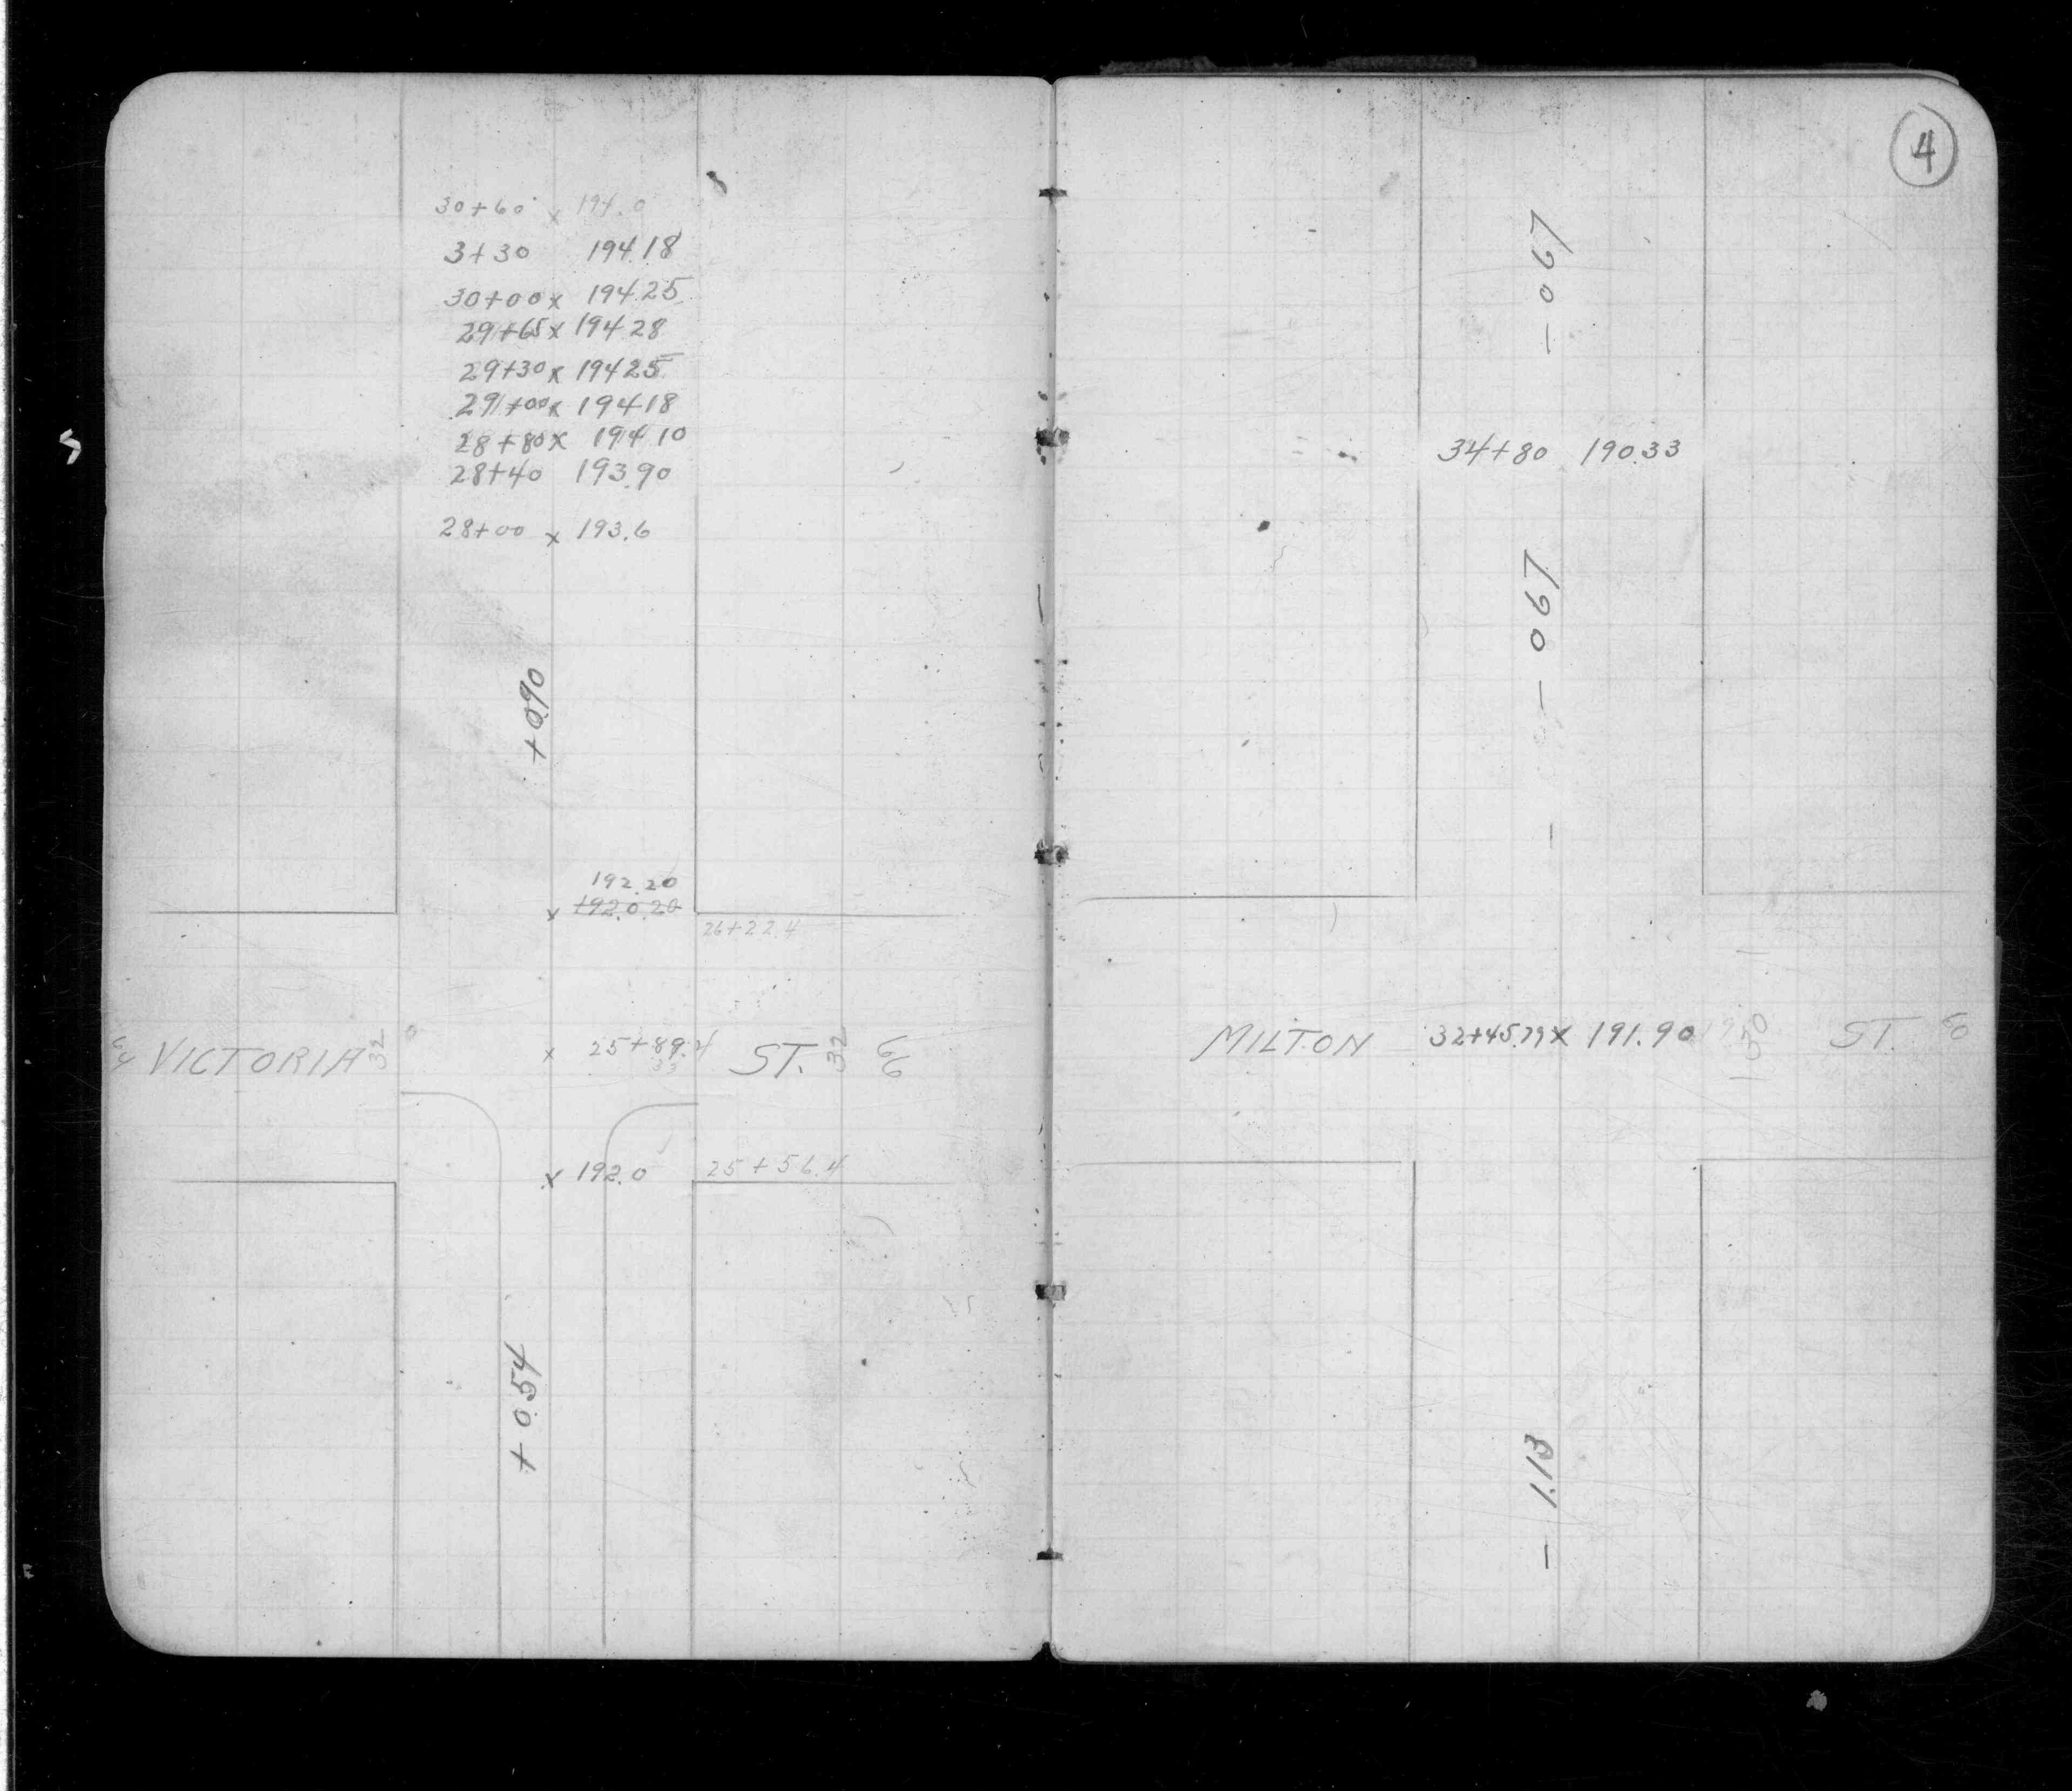 30+60 x 194.0
3+30 194.18
30+00 x 194.25
29+65 x 194.28
29+30 x 194.25
29+00 x 194.18
28+80 x 194.10
28+40 193.90
28+00 x 193.6
+0.90
192.20
x 192.0.20
26+22.4
VICTORIA 32 x 25+89.4 ST. 32 66
33
x 192.0 25+56.4
+0.54
4
-0.67
34+80 190.33
-0.67
MILTON 32+45.79 x 191.90 30 ST. 60